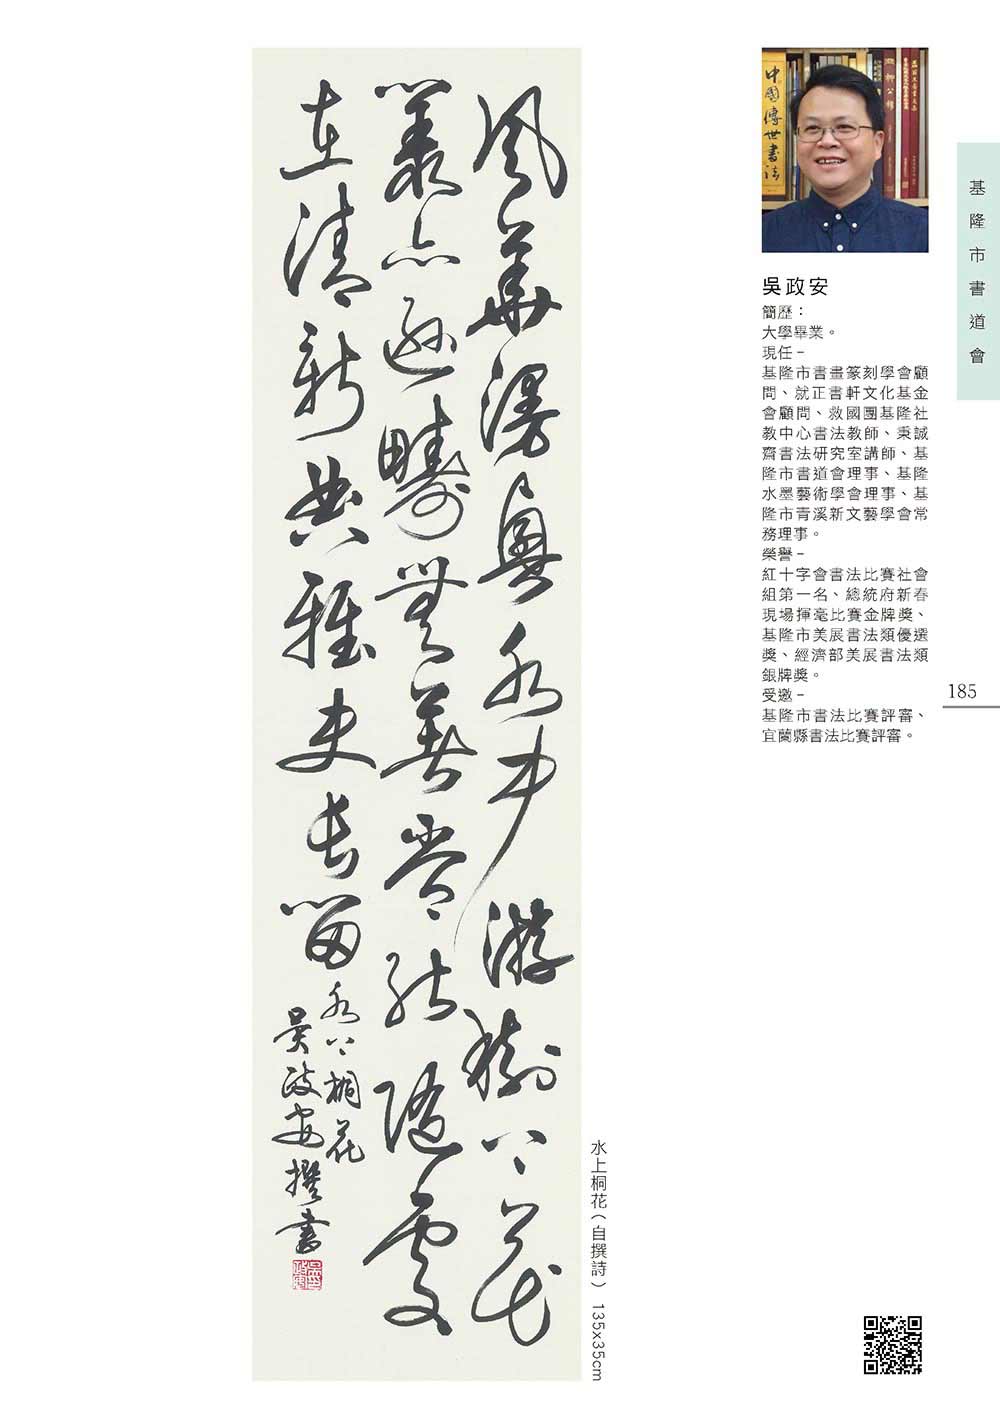 風華漫與水中游樹上花
叢點遜疇無能隨處
在清新典雅史長留
水上桐花
吳政安撰書
水上桐花(自撰詩) 135x35cm
中國傳世書法
吳政安
簡歷：
大學畢業。
現任－
基隆市書畫篆刻學會顧
問、就正書軒文化基金
會顧問、救國團基隆社
教中心書法教師、秉誠
齋書法研究室講師、基
隆市書道會理事、基隆
水墨藝術學會理事、基
隆市青溪新文藝學會常
務理事。
榮譽－
紅十字會書法比賽社會
組第一名、總統府新春
現場揮毫比賽金牌獎、
基隆市美展書法類優選
獎、經濟部美展書法類
銀牌獎。
受邀－
基隆市書法比賽評審、
宜蘭縣書法比賽評審。
基隆市書道會
185